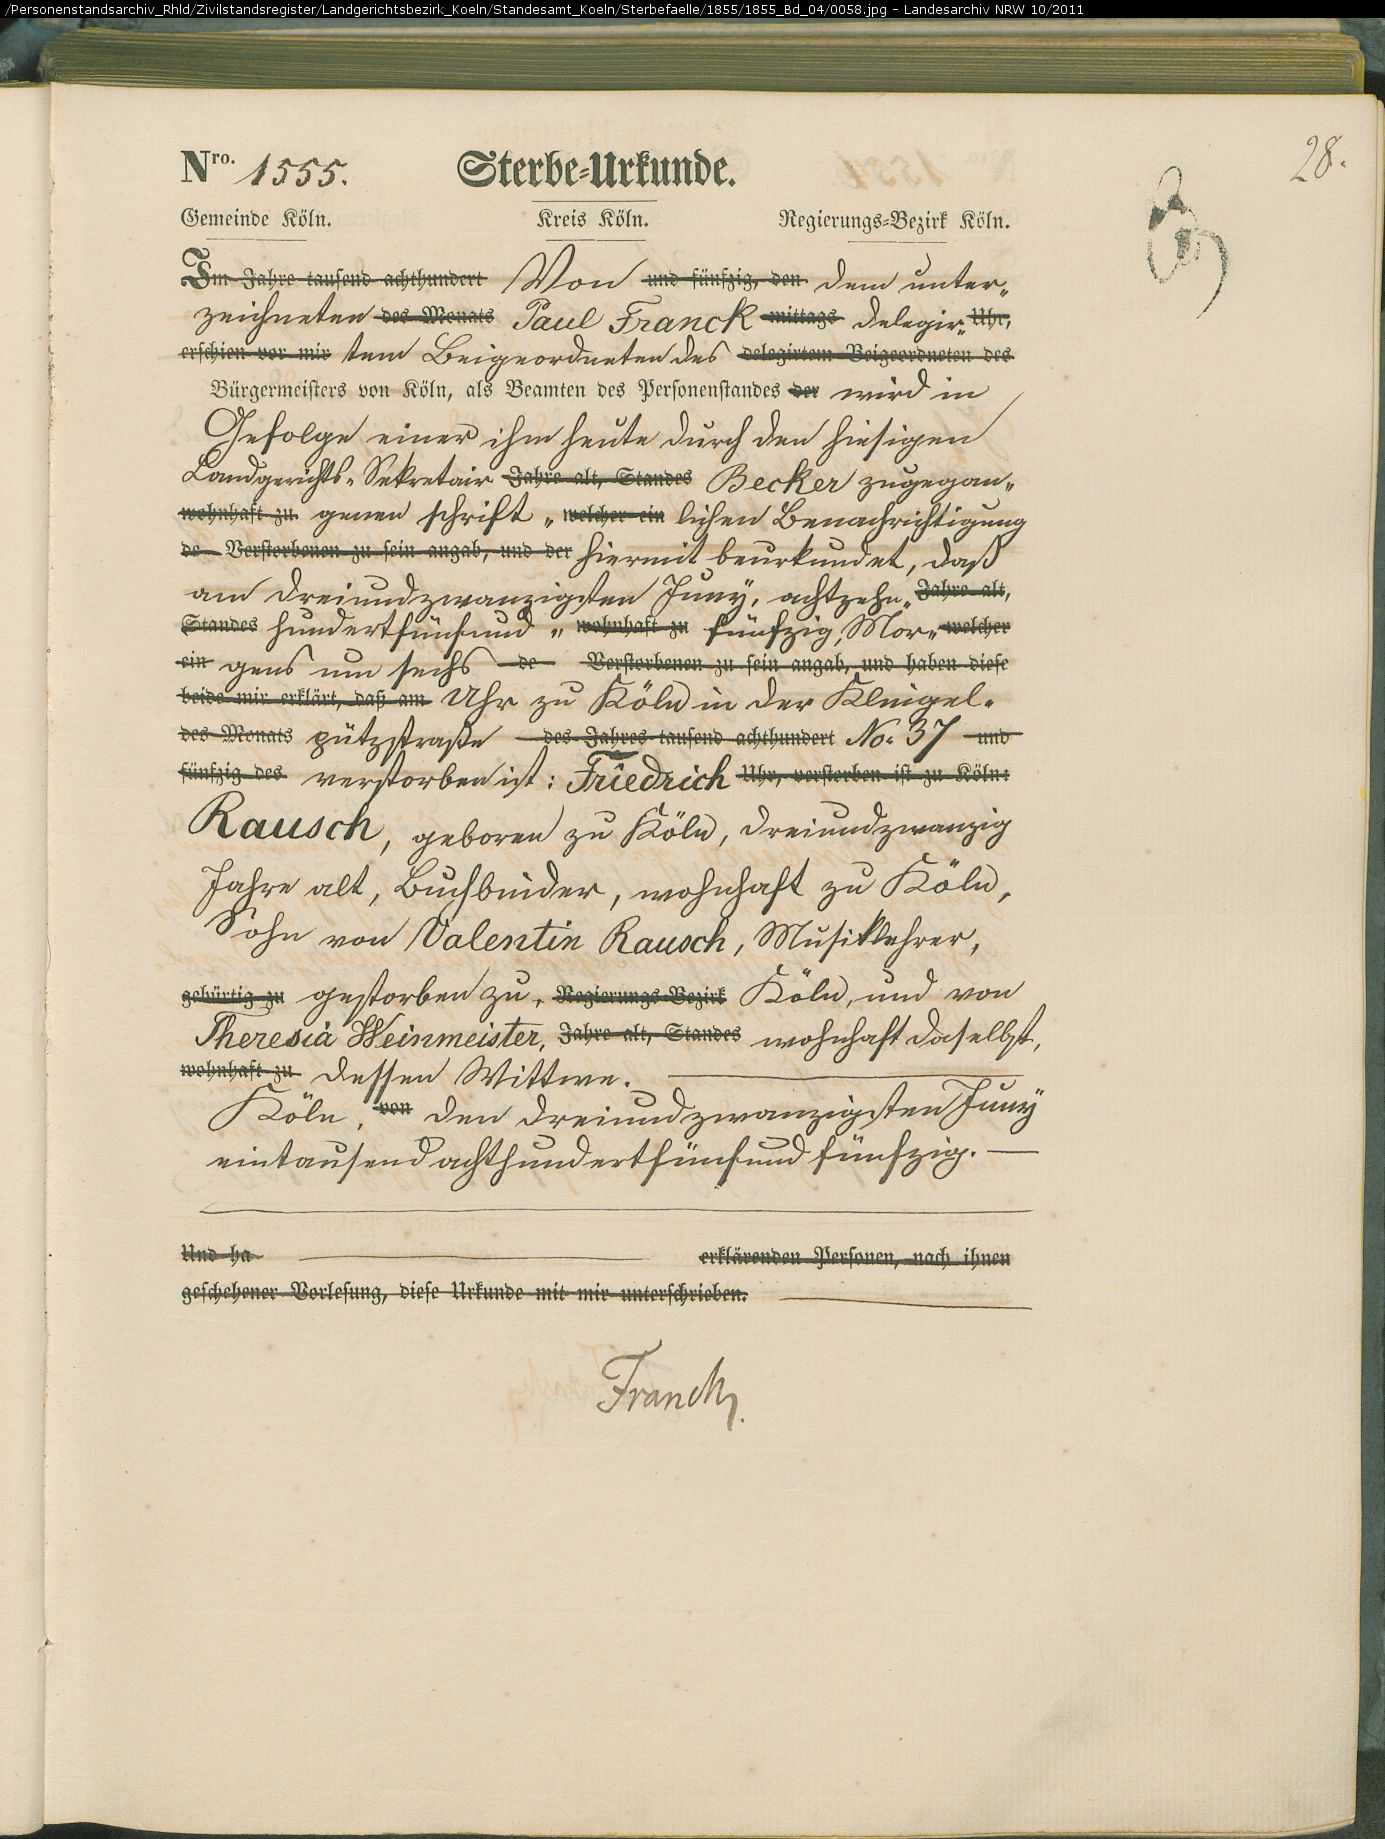 /Personenstandsarchiv_Rhld/Zivilstandsregister/Landgerichtsbezirk_Koeln/Standesamt_Koeln/Sterbefaelle/1855/1855_Bd_04/0058.jpg - Landesarchiv NRW 10/2011
28.
Nro. 1555. Sterbe-Urkunde.
Gemeinde Köln. Kreis Köln. Regierungs-Bezirk Köln.
Im Jahre tausend achthundert Von und fünfzig, den dem unter-
zeichneten des Monats Paul Franck mittags delegir- Uhr,
erschien vor mir tem Beigeordneten des delegirtem Beigeordneten des
Bürgermeisters von Köln, als Beamten des Personenstandes der wird in
Gefolge einer ihm heute durch den hiesigen
Landgerichts-Sekretair Jahre alt, Standes Becker zugegan-
wohnhaft zu genen schrift- welcher ein lichen Benachrichtigung
de Verstorbenen zu sein angab, und der hiermit beurkundet, daß
am dreiundzwanzigsten Juny, achtzehn- Jahre alt,
Standes hundertfünfund- wohnhaft zu fünfzig, Mor- welcher
ein gens um sechs de Verstorbenen zu sein angab, und haben diese
beide mir erklärt, daß am Uhr zu Köln in der Klingel-
des Monats pützstraße des Jahres tausend achthundert No. 37 und
fünfzig des verstorben ist: Friedrich Uhr, verstorben ist zu Köln:
Rausch, geboren zu Köln, dreiundzwanzig
Jahre alt, Buchbinder, wohnhaft zu Köln,
Sohn von Valentin Rausch, Musiklehrer,
gebürtig zu gestorben zu, Regierungs-Bezirk Köln, und von
Theresia Weinmeister, Jahre alt, Standes wohnhaft daselbst,
wohnhaft zu dessen Wittwe.
Köln, von den dreiundzwanzigsten Juny
eintausend achthundertfünfund fünfzig.
Und ha erklärenden Personen, nach ihnen
geschehener Vorlesung, diese Urkunde mit mir unterschrieben.
Franck.